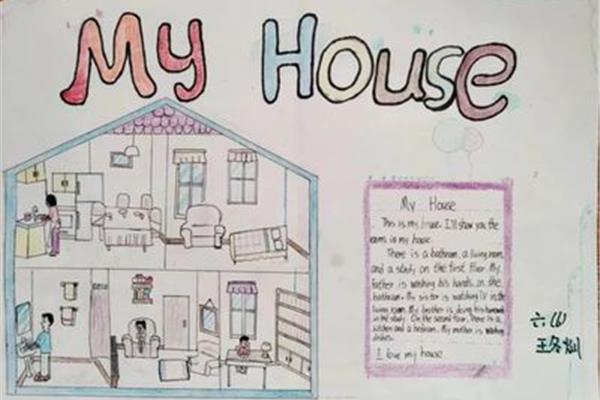 My House
My House
This is my house. I'll show you the
rooms in my house.
There is a bathroom, a living room
and a study on the first floor. My
father is washing his hands in the
bathroom. My sister is watching TV in the
living room. My brother is doing his homework
in the study. On the second floor, There is a
kitchen and a bedroom. My mother is washing
dishes.
I love my house.
六(4)
王冬灿